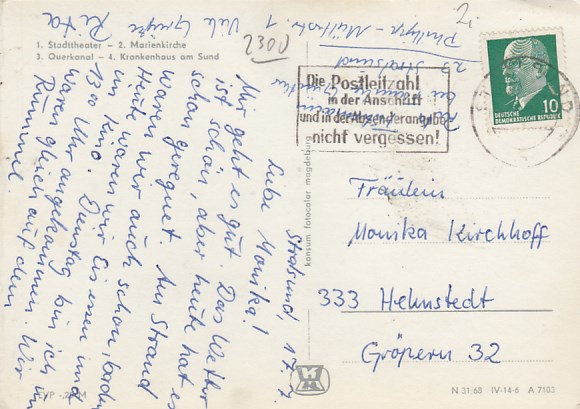 1. Stadttheater – 2. Marienkirche
3. Querkanal – 4. Krankenhaus am Sund
Stralsund, 17. 7.
Liebe Monika!
Mir geht es gut. Das Wetter
ist schön, aber heute hat es
schon geregnet. Am Strand
waren wir auch schon, baden
Heute waren wir Eis essen und
im Kino. Dienstag bin ich um
13.00 Uhr angekommen. Wir
waren gleich auf dem
Rummel.
Viele Grüße
Rita
2300
23 Stralsund
Die Postleitzahl
in der Anschrift
und in der Absenderangabe
nicht vergessen!
DEUTSCHE
DEMOKRATISCHE REPUBLIK
10
Fräulein
Monika Kirchhoff
333 Helmstedt
Gröpern 32
konsum fotocolor magdeburg
EVP -,25 M
N 31/68 IV-14-6 A 7103